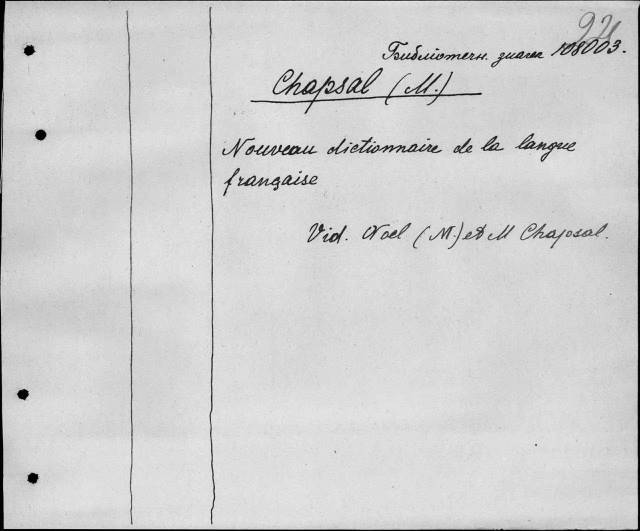 921
Библіотечн. значек 108003.
Chapsal (M.)
Nouveau dictionnaire de la langue
française
Vid. Noel (M.) et M Chapsal.